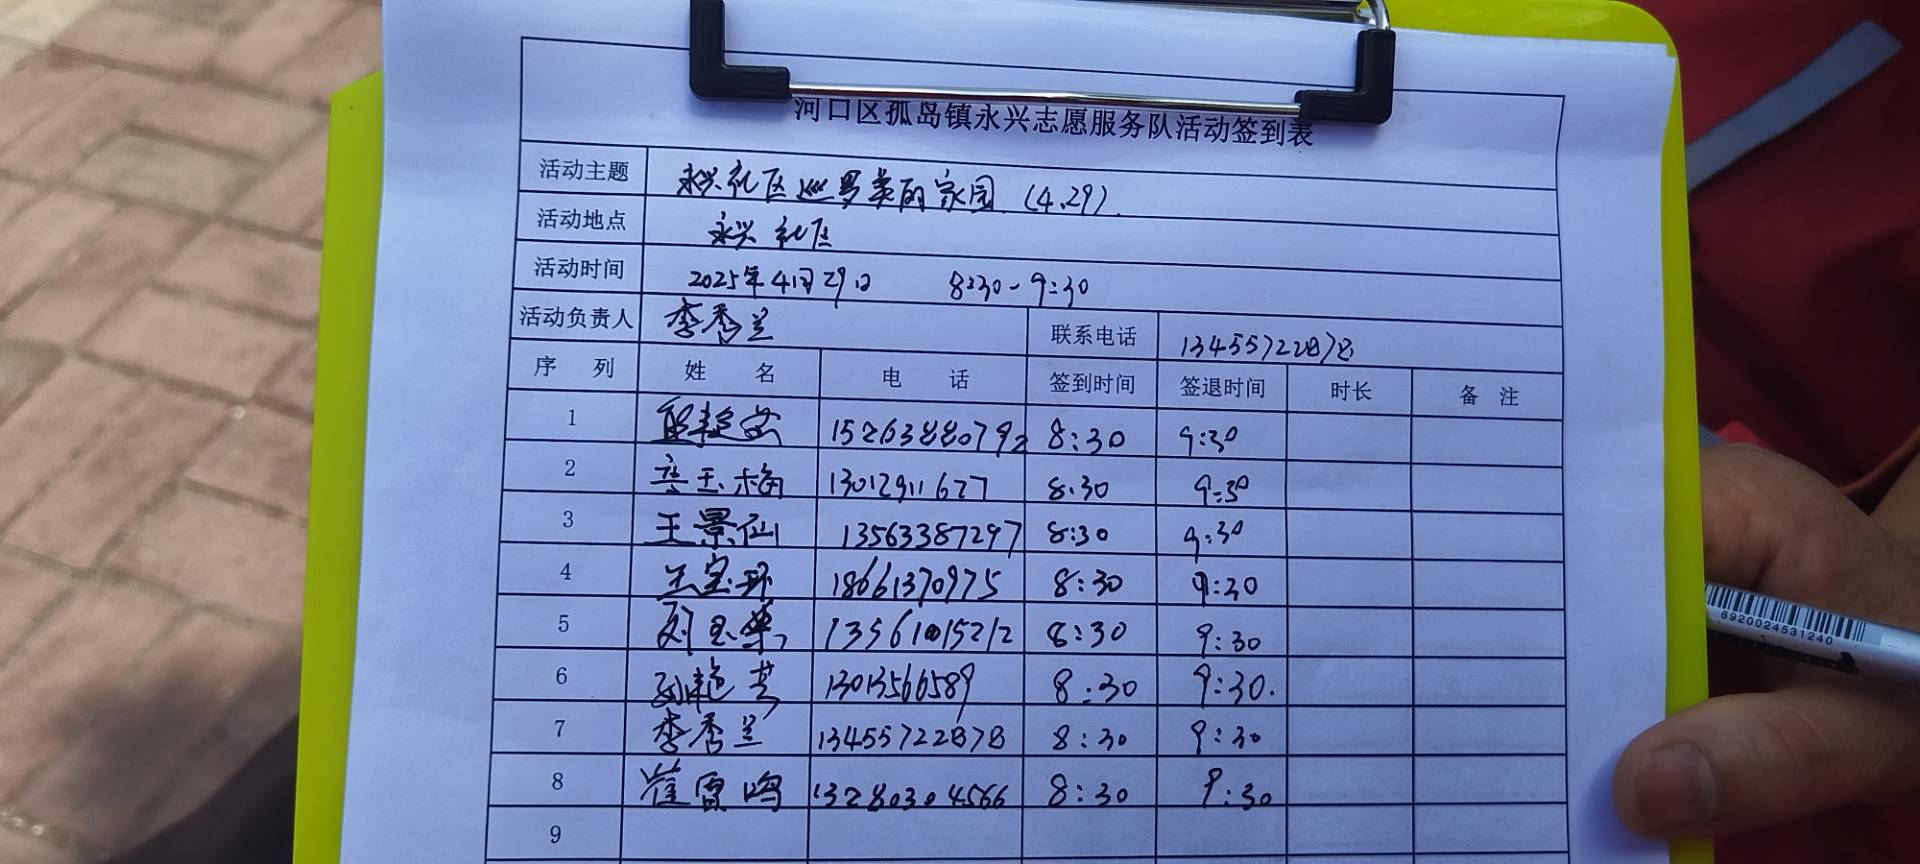 河口区孤岛镇永兴志愿服务队活动签到表
活动主题 永兴社区巡罗美丽家园 (4.29)
活动地点 永兴社区
活动时间 2025年4月29日 8:30-9:30
活动负责人 李秀兰 联系电话 13455722878
序 列 姓 名 电 话 签到时间 签退时间 时长 备 注
1 15263880792 8:30 9:30
2 玉梅 13012911627 8:30 9:30
3 王景仙 13563387297 8:30 9:30
4 王宝环 18661370975 8:30 9:30
5 刘玉荣 13561015212 8:30 9:30
6 孙艳芸 13013566589 8:30 9:30.
7 李秀兰 13455722878 8:30 9:30
8 崔雷鸣 13280304566 8:30 9:30
9
6920024531240